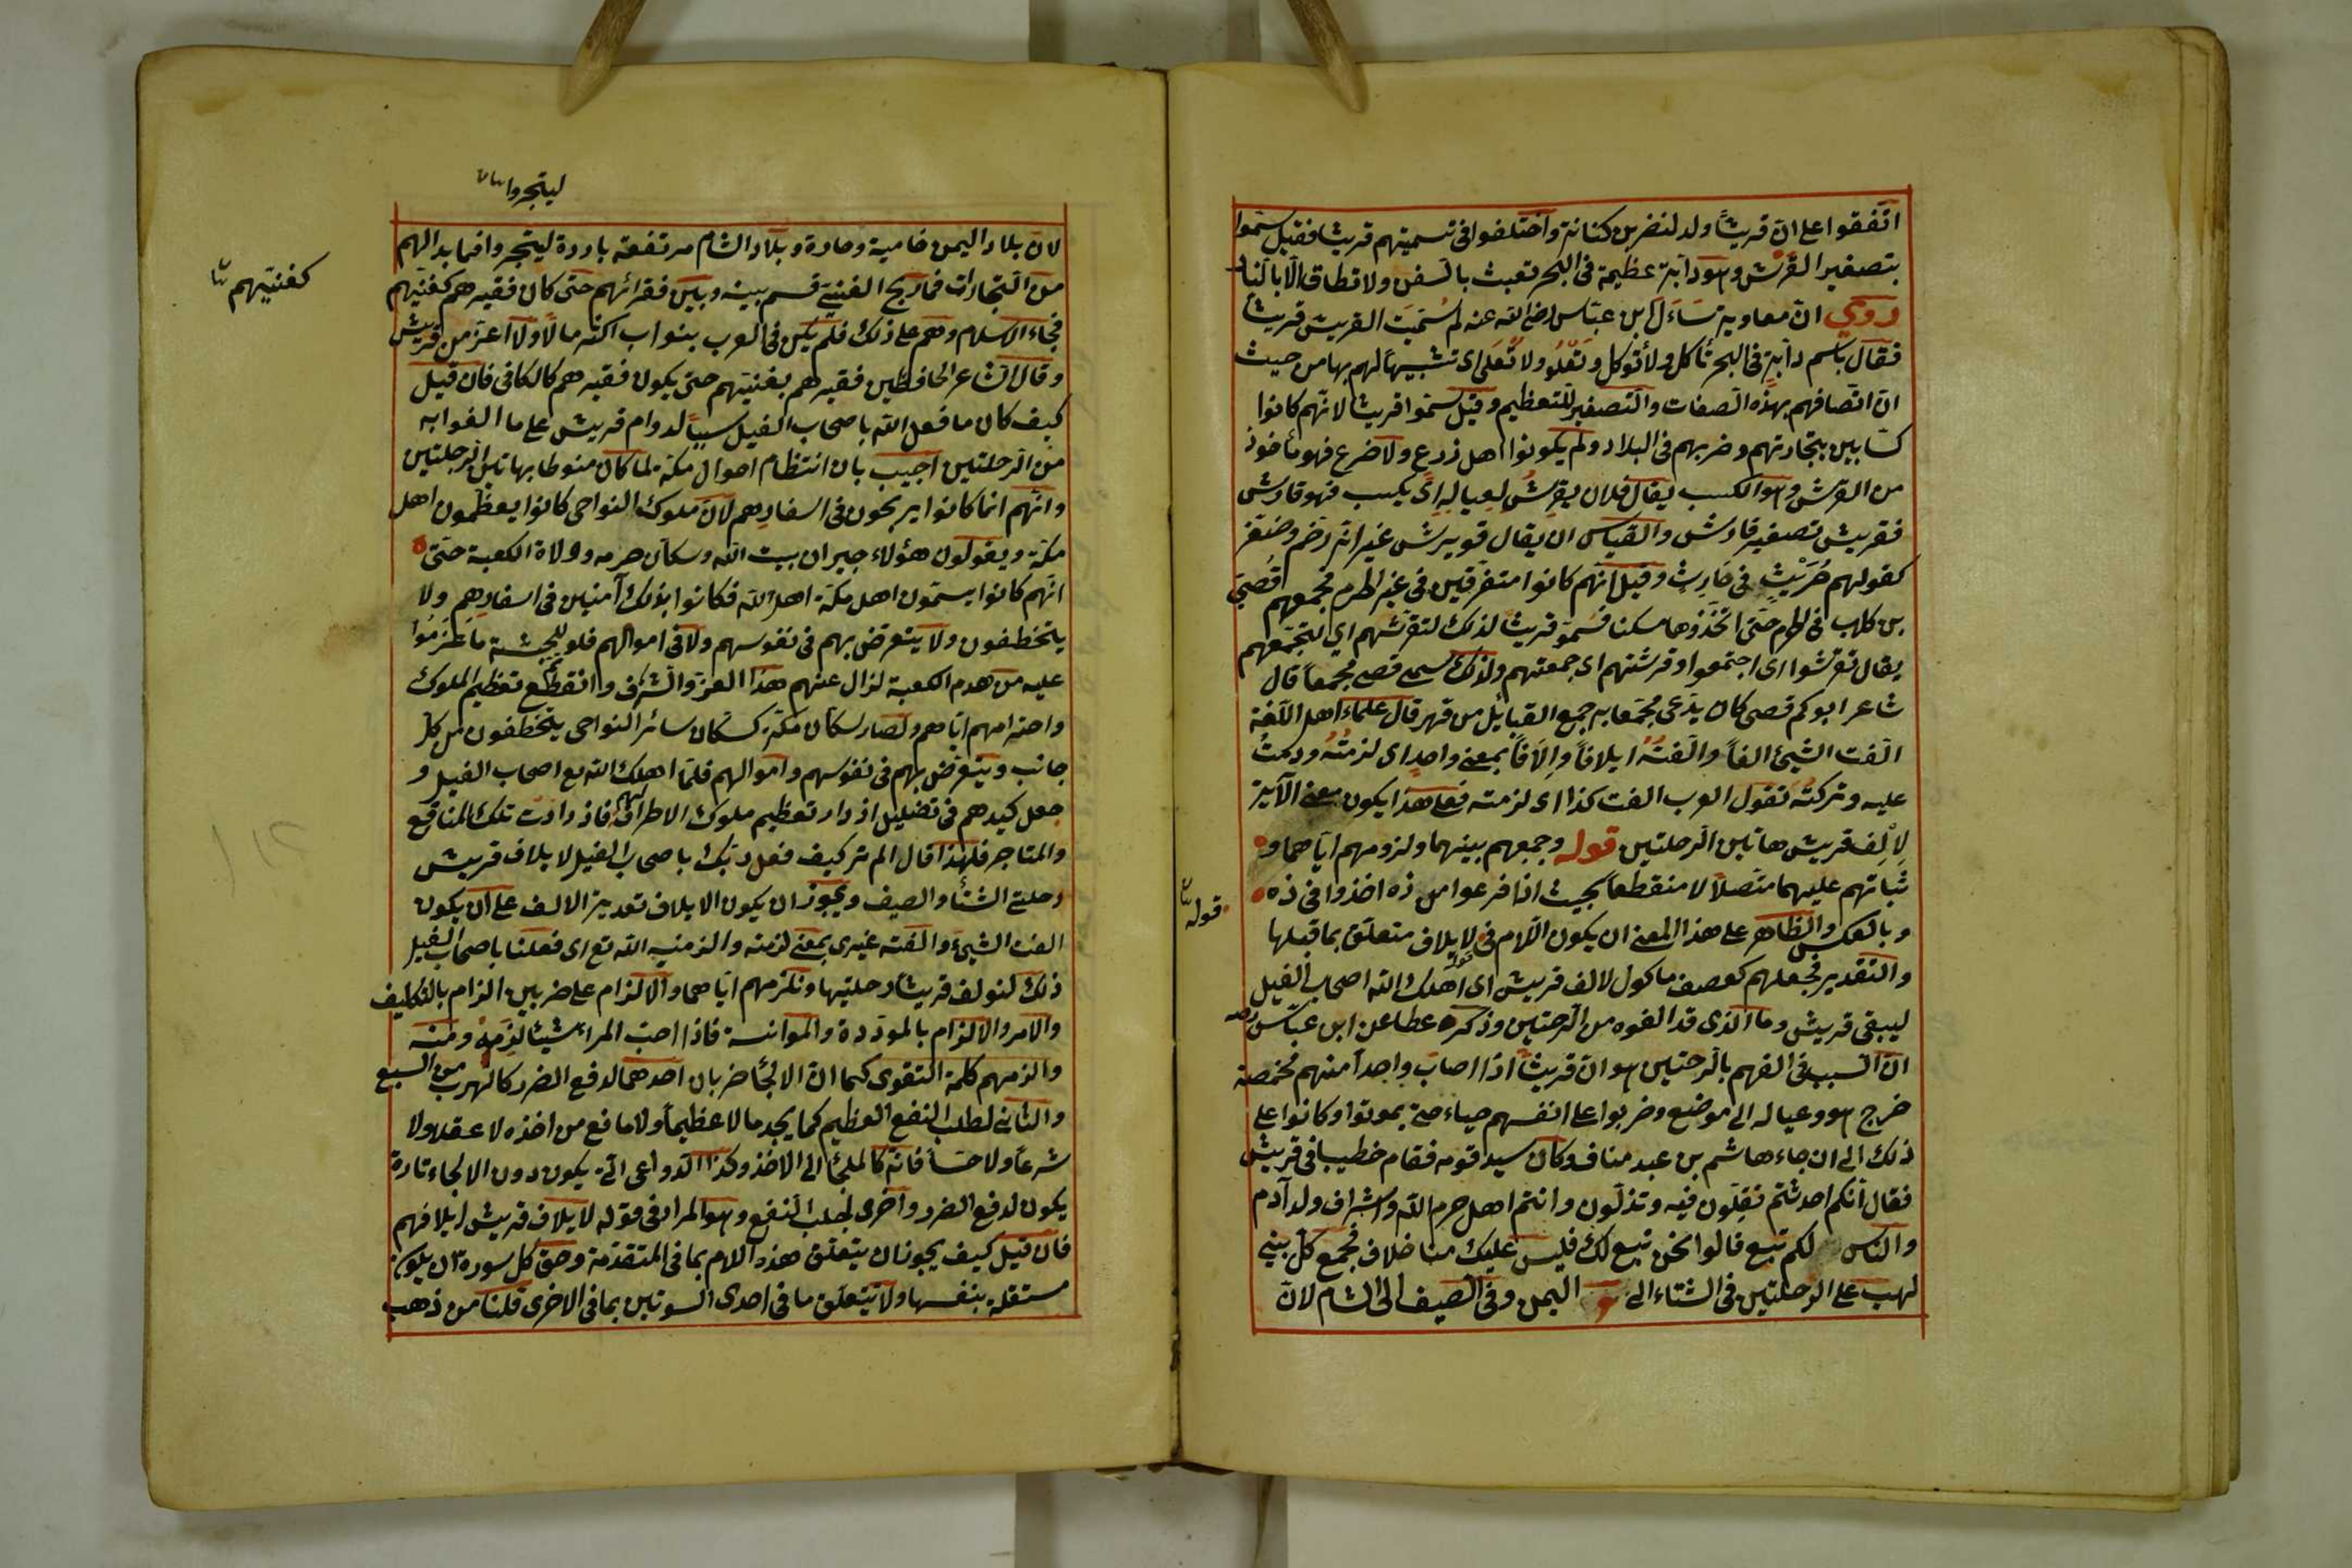 اتفقوا على ان قريشاً ولد لنضر بن كنانة واختلفوا فى تسميتهم قريشا فقيل سموا
بتصغير القرش وهو دابة عظيمة فى البحر تعبث بالسفن ولا تطاق الا بالنار
روي ان معاوية سَاَءلَ ابن عبّاس رضى الله عنه لم سُمّيَت القريش قريشاً
فقال باسم دابة فى البحر تأكل ولا تُوكل وتَعْلُو ولا تُعلَى اى تشبيهاً لهم بها من حيث
ان اتصافهم بهذه الصفات والتصغير للتعظيم وقيل سموا قريشا لانهم كانوا
كسّابين بتجارتهم وضربهم فى البلاد ولم يكونوا اهل زرع ولا ضرع فهو مأخوذ
من القرش وهو الكسب يقال فلان يقرِشُ لِعيالِهِ اى يكسب فهو قارش
فقريش تصغير قارش والقياس ان يقال قويرش غير انه رخّم وصغّر
كقولهم حُرَيْثٍ فى حَارِثٍ وقيل انهم كانوا متفرقين فى غير الحرم فجمعهم قُصَيّ
بن كلاب فى الحرم حتى اتخذوها مسكنا فسُمّو قريشاً لذلك لتقرّشهم اي لتجمّعهم
يقال تقرّشوا اى اجتمعوا وقرشتهم اى جمعتهم ولذلك سمى قصى مجمعاً قال
شاعر ابوكم قصى كان يدعى مجمعا به جمع القبايل من فهر قال علماء اهل اللغة
الّفت الشيئ الفاً والّفتُهُ ايلافاً وإلافاً بمعنى واحدٍ اى لزمتُهُ ودمتُ
عليه وتركته تقول العرب الفت كذا اى لزمته فعلى هذا يكون معنى الآية
لِالْفِ قريش هاتين الرحلتين قوله وجمعهم بينهما ولزومهم اياهما و
ثباتهم عليهما متصلاً لا منقطعاً بحيث اذا فرغوا من ذه اخذوا فى ذه
وبالعكس والظاهر على هذا المعنى ان يكون اللام فى لايلاف متعلق بما قبلها
والتقدير فجعلهم كعصف ماكول لالف قريش اى اهلك الله اصحاب الفيل
ليبقى قريش وما الذى قد الفوه من الرحتين وذكر عطا عن ابن عبّاس رضه
ان السبب فى الفهم بالرحتين هو ان قريشاً اذا اصاب واحداً منهم مخمصة
خرج هو وعياله الى موضع وضربوا على انفسهم حياء حتى يموتوا وكانوا على
ذلك الى ان جاء هاشم بن عبد مناف وكان سيد قومه فقام خطيبا فى قريش
فقال انكم احدثتم تقِلّون فيه وتذلّون وانتم اهل حرم الله واشراف ولد آدم
والناس لكم تبع قالوا نحن تبع لك فليس عليك منا خلاف فجمع كل بنى
لهب على الرحلتين فى الشتاء الى اليمن وفى الصيف الى الشام لان
قوله
ليتجروا
لان بلاد اليمن حامية وحارة وبلاد الشام مرتفعة باردة ليتجروا فيما بدا لهم
من التجارات فما ربح الغنىّ قسم بينه وبين فقرائهم حتى كان فقيرهم كغنيّهم
فجاء الاسلام وهم على ذلك فلم يكن فى العرب بنو اب اكثر مالاً ولا اعز من قريش
وقال الشاعر الخافطين فقيرهم بغنيّهم حتى يكون فقيرهم كالكافى فان قيل
كيف كان ما فعل الله باصحاب الفيل سبباً لدوام قريش على ما الفوا به
من الرحلتين اجيب بان انتظام احوال مكة لما كان منوطا بهاتين الرحلتين
وانهم انما كانوا يربحون فى اسفارِهم لان ملوك النواحى كانوا يعظمون اهل
مكة ويقولون هؤلاء جيران بيت الله وسكان حرمه وولاة الكعبة حتى
انهم كانوا يسمّون اهل مكة اهل الله فكانوا بذلك آمنين فى اسفارِهِم ولا
يتخطفون ولا يتعرض بهم فى نفوسهم ولا فى اموالهم فلو للحبشة ما عَزَمُوا
عليه من هدم الكعبة لزال عنهم هذا العز والشرف وانقطع تعظيم الملوك
واحترامهم اياهم ولصار سكان مكة كسكان سائر النواحى يتخطفون من كل
جانب ويتعرض بهم فى نفوسهم واموالهم فلما اهلك الله تع اصحاب الفيل و
جعل كيدهم فى تضليل ازداد تعظيم ملوك الاطراف لهم فازدادت تلك المنافع
والمتاجر فلهذا قال الم تر كيف فعل ربك باصحاب الفيل لايلاف قريش
رحلتى الشتاء والصيف ويجوز ان يكون الايلاف تعدية الالف على ان يكون
الفت الشيئ والفته غيرى بمعنى لزمته والزمنيه الله تع اى فعلنا باصحاب الفيل
ذلك لنولف قريشاً رحلتيها ونلزمهم اياهما والالزام على ضربين الزام بالتكليف
والامر والالزام بالموددة والموانسة فاذا احب المراء شيئاً لزِمهُ ومنه
والزمهم كلمة التقوى كما ان الالجأ ضربان احدهما لدفع الضرر كالهرب من السبع
والثانى لطلب النفع العظيم كما يجد مالا عظيماً ولا مانع من اخذه لا عقلا ولا
شرعاً ولا حساً فانه كالملجئ الى الاخذ وكذا الدواعى التى يكون دون الالجاء تارة
يكون لدفع الضرر واخرى لجلب النفع وهو المراد فى قوله لايلاف قريش ايلافهم
فان قيل كيف يجوز ان يتعلق هذه اللام بما فى المتقدمة وحق كل سورة ان يكون
مستقلة بنفسها ولا تتعلق ما فى احدى السوتين بما فى الاخرى قلنا من ذهب
كغنيّهم